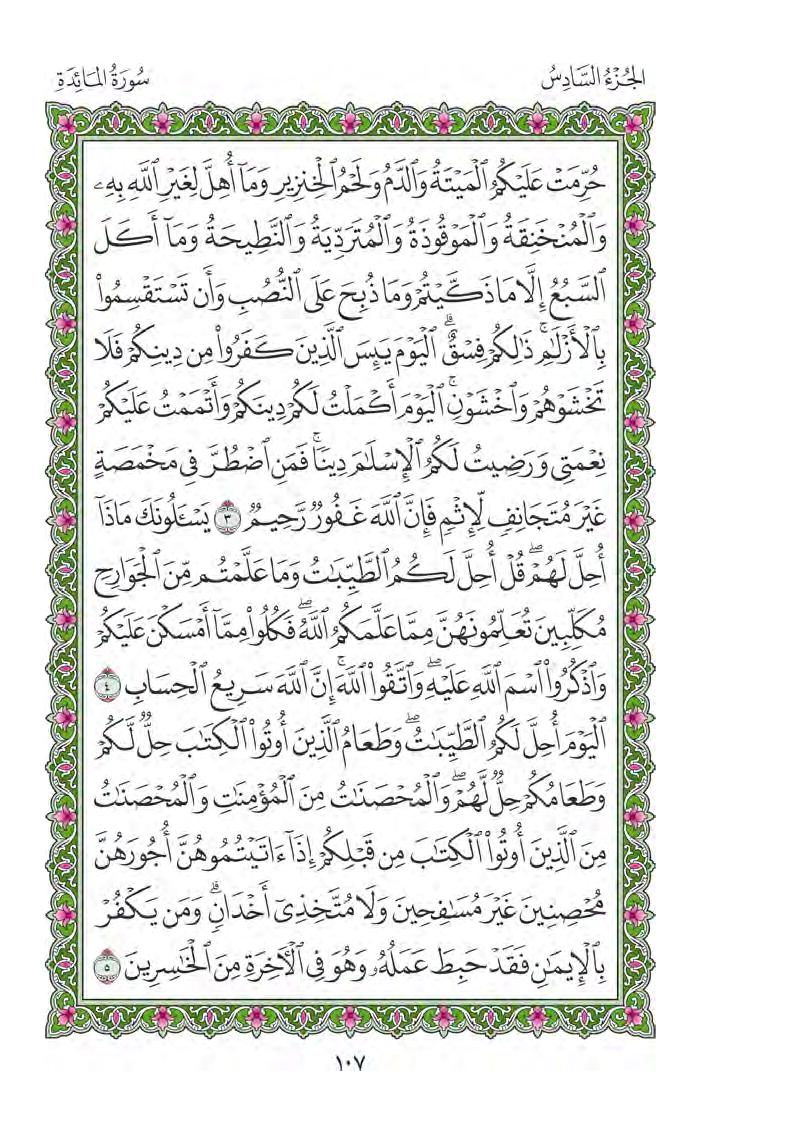 الجُزْءُ السَّادِسُ سُورَةُ المَائِدَةِ
حُرِّمَتْ عَلَيْكُمُ ٱلْمَيْتَةُ وَٱلدَّمُ وَلَحْمُ ٱلْخِنزِيرِ وَمَآ أُهِلَّ لِغَيْرِ ٱللَّهِ بِهِۦ
وَٱلْمُنْخَنِقَةُ وَٱلْمَوْقُوذَةُ وَٱلْمُتَرَدِّيَةُ وَٱلنَّطِيحَةُ وَمَآ أَكَلَ
ٱلسَّبُعُ إِلَّا مَا ذَكَّيْتُمْ وَمَا ذُبِحَ عَلَى ٱلنُّصُبِ وَأَن تَسْتَقْسِمُوا۟
بِٱلْأَزْلَـٰمِ ۚ ذَٰلِكُمْ فِسْقٌ ۗ ٱلْيَوْمَ يَئِسَ ٱلَّذِينَ كَفَرُوا۟ مِن دِينِكُمْ فَلَا
تَخْشَوْهُمْ وَٱخْشَوْنِ ۚ ٱلْيَوْمَ أَكْمَلْتُ لَكُمْ دِينَكُمْ وَأَتْمَمْتُ عَلَيْكُمْ
نِعْمَتِى وَرَضِيتُ لَكُمُ ٱلْإِسْلَـٰمَ دِينًا ۚ فَمَنِ ٱضْطُرَّ فِى مَخْمَصَةٍ
غَيْرَ مُتَجَانِفٍ لِّإِثْمٍ فَإِنَّ ٱللَّهَ غَفُورٌ رَّحِيمٌ ٣ يَسْـَٔلُونَكَ مَاذَآ
أُحِلَّ لَهُمْ ۖ قُلْ أُحِلَّ لَكُمُ ٱلطَّيِّبَـٰتُ وَمَا عَلَّمْتُم مِّنَ ٱلْجَوَارِحِ
مُكَلِّبِينَ تُعَلِّمُونَهُنَّ مِمَّا عَلَّمَكُمُ ٱللَّهُ ۖ فَكُلُوا۟ مِمَّآ أَمْسَكْنَ عَلَيْكُمْ
وَٱذْكُرُوا۟ ٱسْمَ ٱللَّهِ عَلَيْهِ ۖ وَٱتَّقُوا۟ ٱللَّهَ ۚ إِنَّ ٱللَّهَ سَرِيعُ ٱلْحِسَابِ ٤
ٱلْيَوْمَ أُحِلَّ لَكُمُ ٱلطَّيِّبَـٰتُ ۖ وَطَعَامُ ٱلَّذِينَ أُوتُوا۟ ٱلْكِتَـٰبَ حِلٌّ لَّكُمْ
وَطَعَامُكُمْ حِلٌّ لَّهُمْ ۖ وَٱلْمُحْصَنَـٰتُ مِنَ ٱلْمُؤْمِنَـٰتِ وَٱلْمُحْصَنَـٰتُ
مِنَ ٱلَّذِينَ أُوتُوا۟ ٱلْكِتَـٰبَ مِن قَبْلِكُمْ إِذَآ ءَاتَيْتُمُوهُنَّ أُجُورَهُنَّ
مُحْصِنِينَ غَيْرَ مُسَـٰفِحِينَ وَلَا مُتَّخِذِىٓ أَخْدَانٍ ۗ وَمَن يَكْفُرْ
بِٱلْإِيمَـٰنِ فَقَدْ حَبِطَ عَمَلُهُۥ وَهُوَ فِى ٱلْـَٔاخِرَةِ مِنَ ٱلْخَـٰسِرِينَ ٥
١٠٧